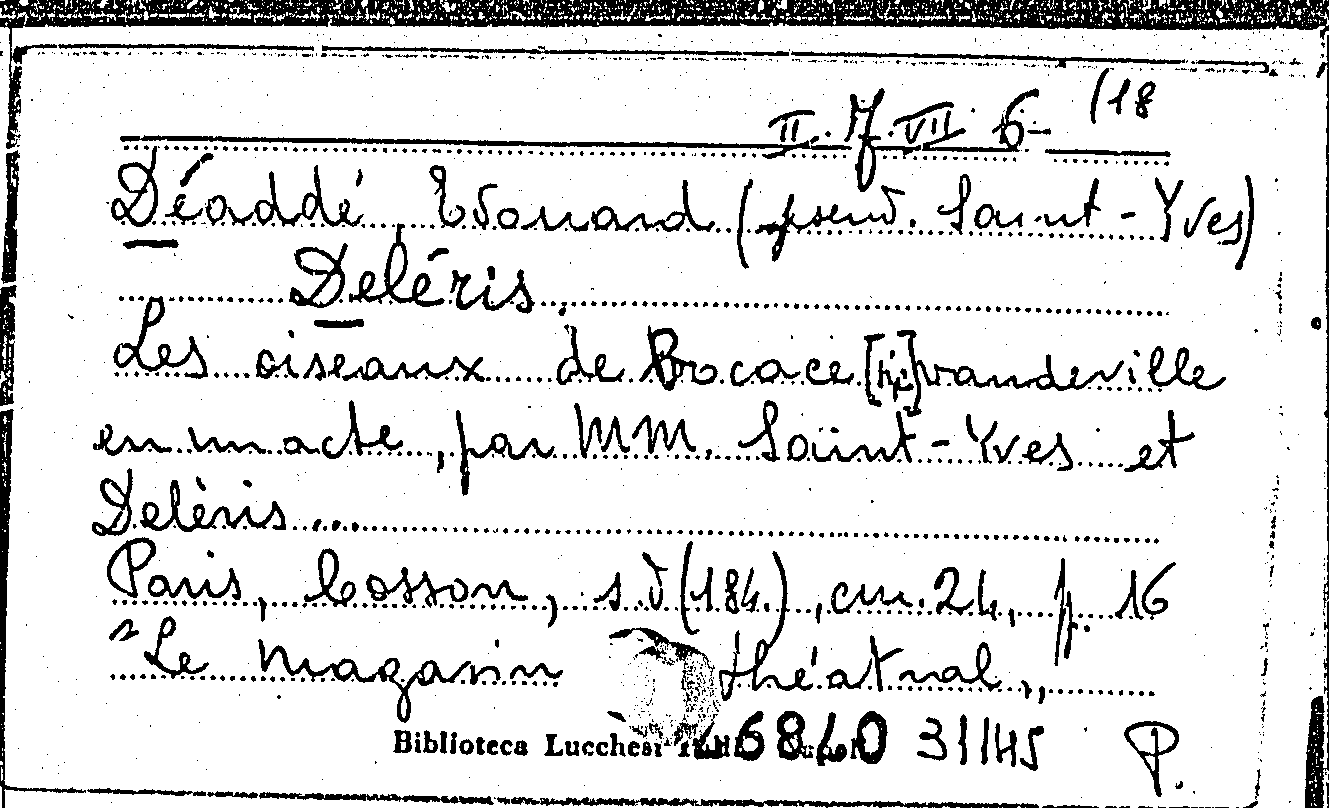 II. M. VII 6- (18
Déaddé, Edouard (pseud. Saint-Yves)
Deléris.
Les oiseaux de Bocace [sic] vaudeville
en un acte, par MM. Saint-Yves et
Deléris...
Paris, Cosson, s.d (184.), cm. 24, p. 16
"Le magasin théatral„
Biblioteca Lucchesi
6840 31145 P.